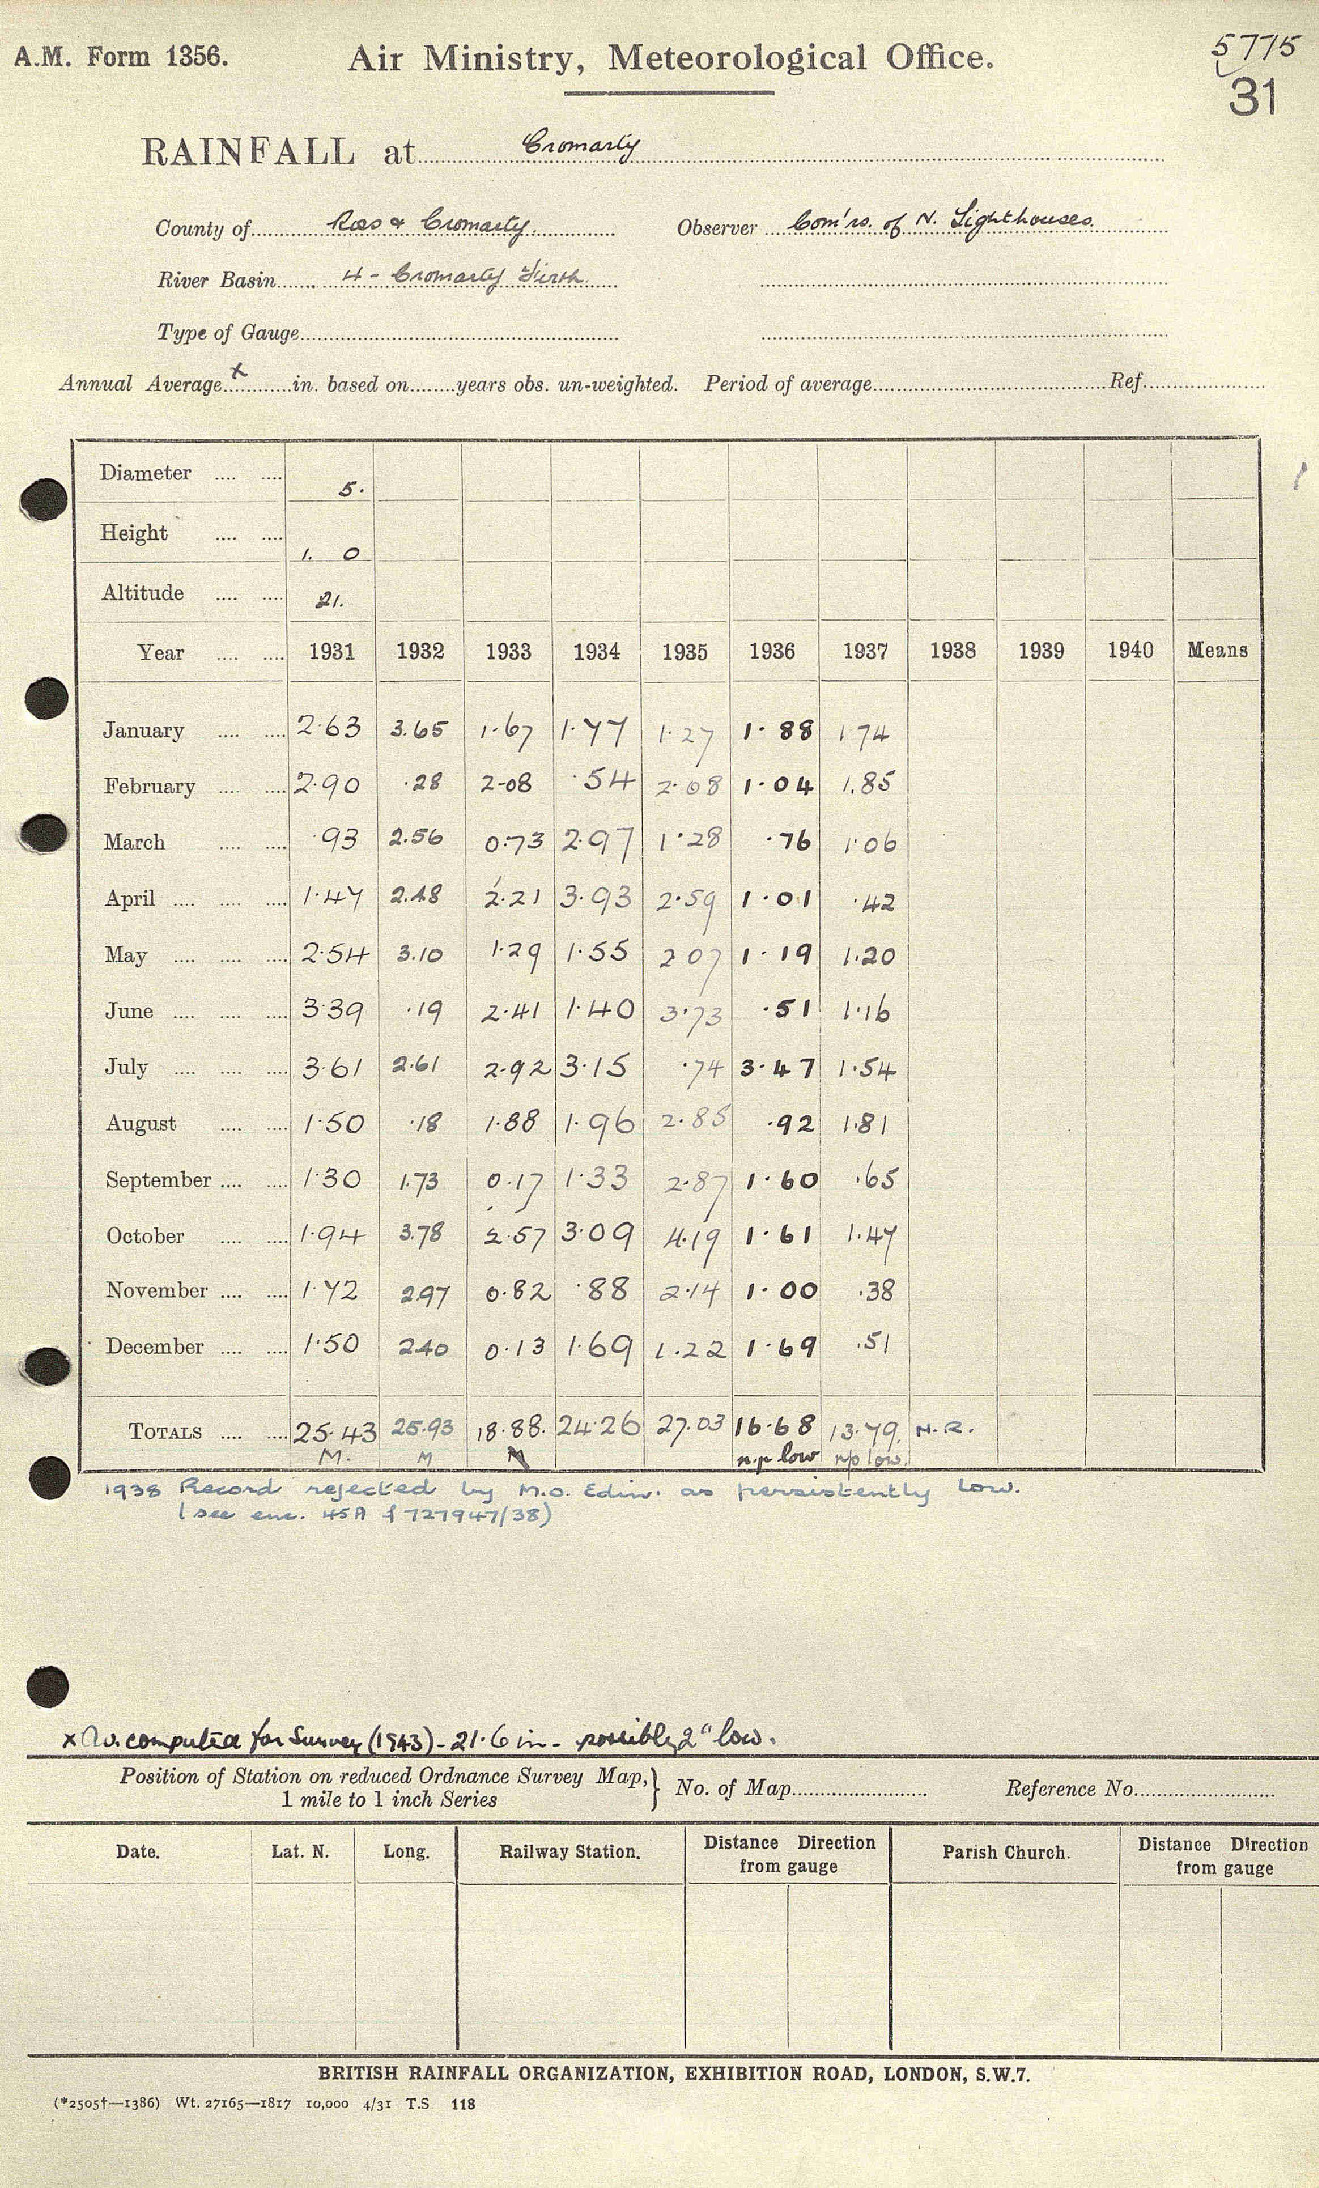 A.M. Form 1356. Air Ministry, Meteorological Office. 5775
31
RAINFALL at Cromarty
County of Ross & Cromarty. Observer Com'rs. of N. Lighthouses.
River Basin 4 - Cromarty Firth
Type of Gauge
Annual Average x in. based on years obs. un-weighted. Period of average Ref
Diameter 5.
Height 1. 0
Altitude 21.
Year 1931 1932 1933 1934 1935 1936 1937 1938 1939 1940 Means
January 2.63 3.65 1.67 1.77 1.27 1.88 1.74
February 2.90 .28 2.08 .54 2.08 1.04 1.85
March .93 2.56 0.73 2.97 1.28 .76 1.06
April 1.47 2.48 2.21 3.93 2.59 1.01 .42
May 2.54 3.10 1.29 1.55 2.07 1.19 1.20
June 3.39 .19 2.41 1.40 3.73 .51 1.16
July 3.61 2.61 2.92 3.15 .74 3.47 1.54
August 1.50 .18 1.88 1.96 2.85 .92 1.81
September 1.30 1.73 0.17 1.33 2.87 1.60 .65
October 1.94 3.78 2.57 3.09 4.19 1.61 1.47
November 1.72 2.97 0.82 .88 2.14 1.00 .38
December 1.50 2.40 0.13 1.69 1.22 1.69 .51
TOTALS 25.43 25.93 18.88. 24.26 27.03 16.68 13.79 N.R.
M. M M n.p low n/p low.
1938 Record rejected by M.O. Edin. as persistently low.
(see enc. 45A f 727947/38)
x Av. computed for Survey (1943) - 21.6 in - possibly 2" low.
Position of Station on reduced Ordnance Survey Map, } No. of Map Reference No.
1 mile to 1 inch Series
Date. Lat. N. Long. Railway Station. Distance Direction from gauge Parish Church. Distance Direction from gauge
BRITISH RAINFALL ORGANIZATION, EXHIBITION ROAD, LONDON, S.W.7.
(*2505†—1386) Wt. 27165—1817 10,000 4/31 T.S 118